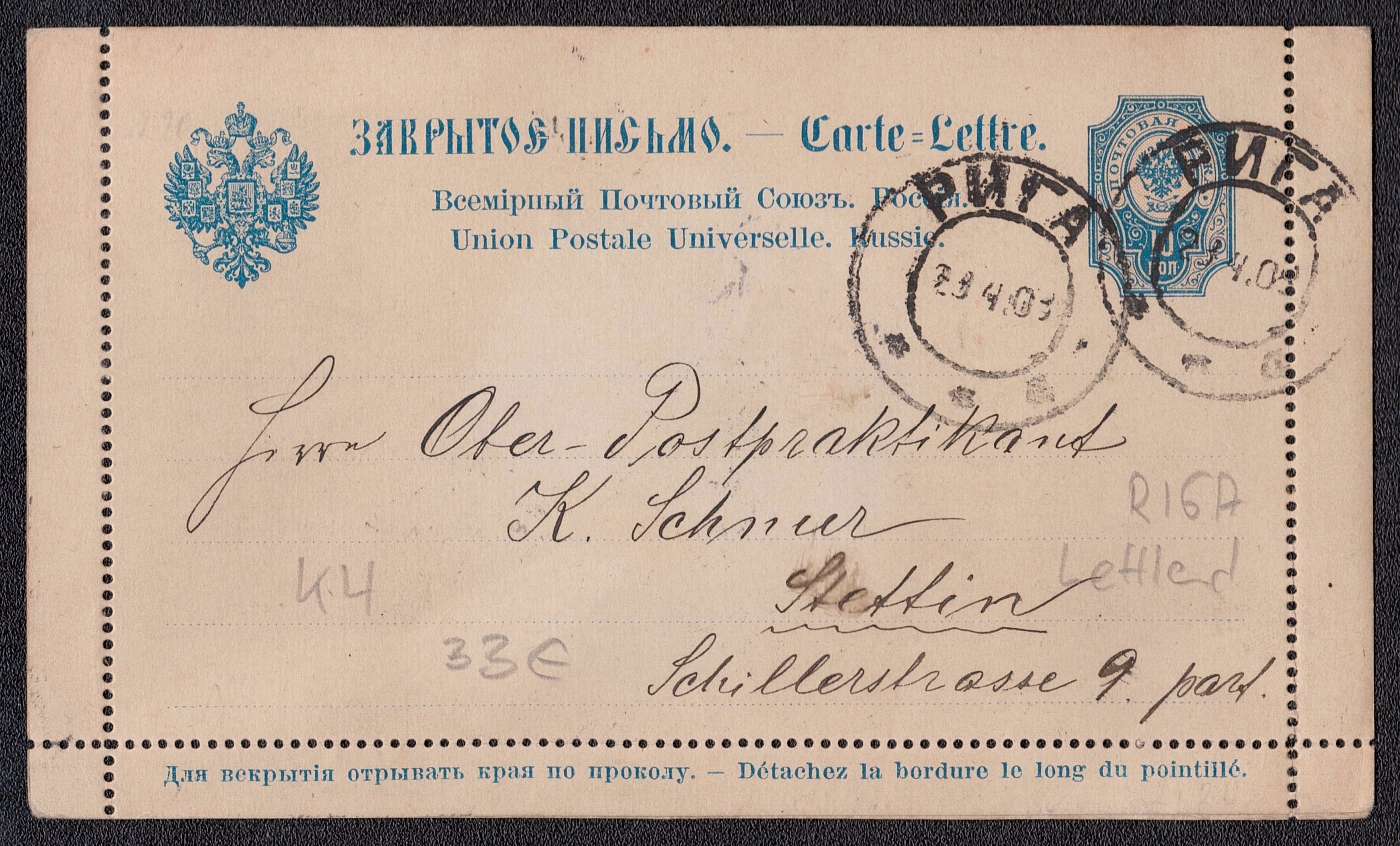 ЗАКРЫТОЕ ПИСЬМО. — Carte=Lettre.
Всемірный Почтовый Союзъ. Россія.
Union Postale Universelle. Russie.
ПОЧТОВАЯ
10
коп.
РИГА
4.03
РИГА
4.03
Herrn Ober-Postpraktikant
K. Schnur
Stettin
Schillerstrasse 9 part.
RIGA
Lettland
K4
33€
Для вскрытія отрывать края по проколу. — Détachez la bordure le long du pointillé.